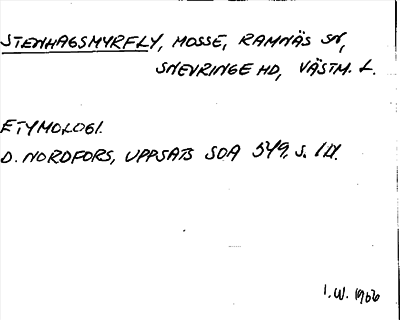 STENHAGSMYRFLY, MOSSE, RAMNÄS SN,
SNEVRINGE HD, VÄSTM. L.
ETYMOLOGI.
D. NORDFORS, UPPSATS SOA 549, S.
I.W. 1966